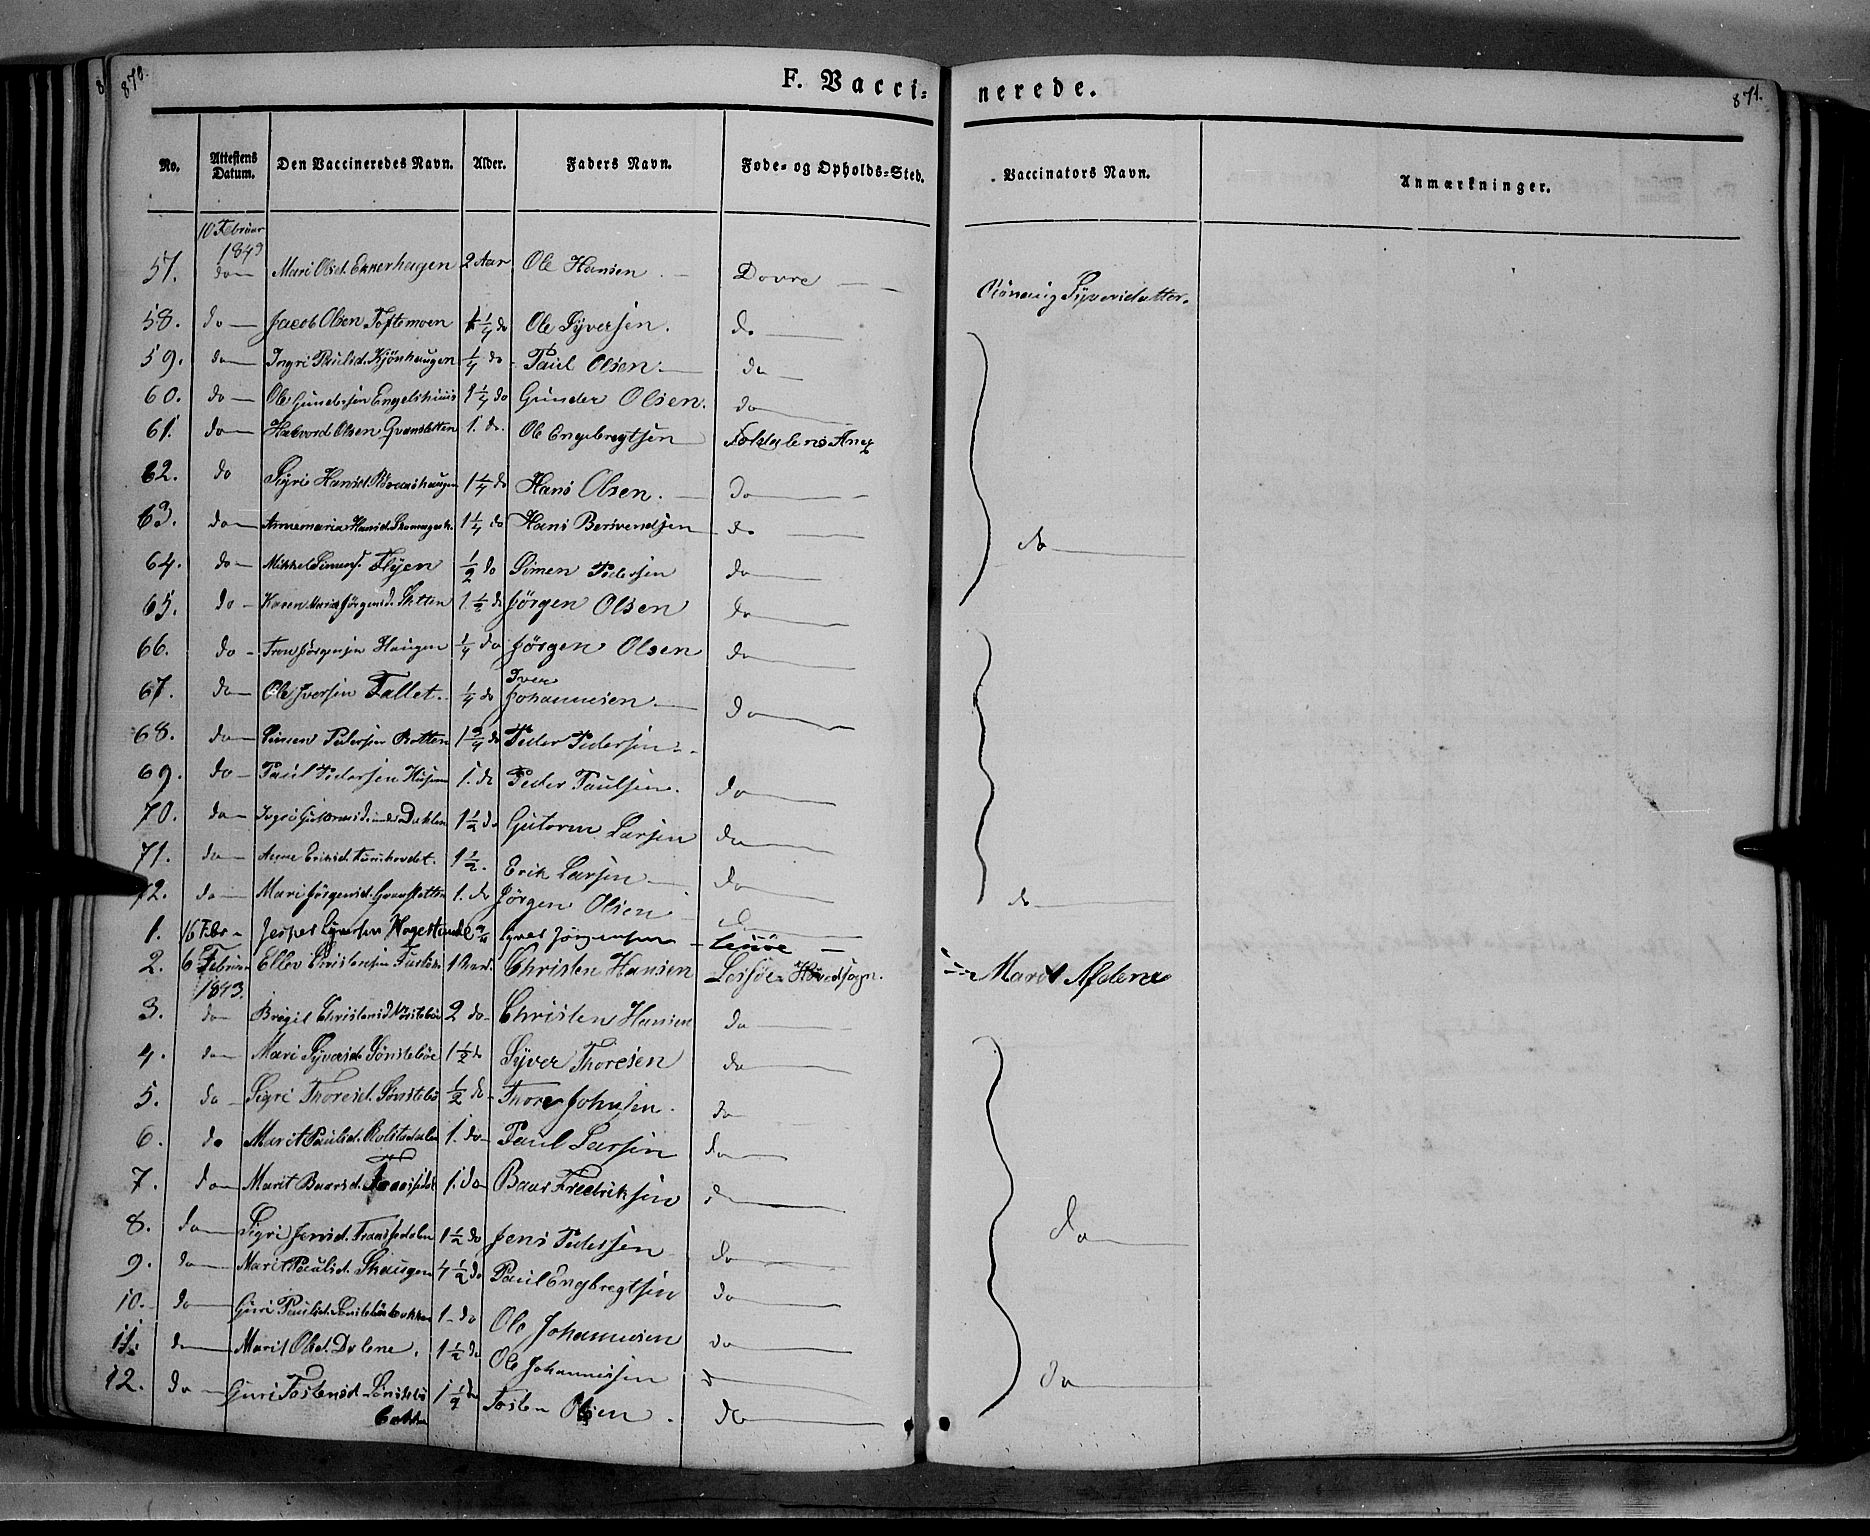 870.
F. Vacci=
nerede.
871.
No. Attestens Datum. Den Vaccineredes Navn. Alder. Faders Navn. Føde= og Opholds=Sted. Vaccinators Navn. Anmærkninger.
10 Februar
1843
57. do Mari Olsd. 2 Aar Ole Hansen Dovre Rönnaug Syversdatter.
58. do Jacob Olsen Toftemoen 1 1/4 do Ole Syversen. do
59. do Ingri Paulsd. Kjönhaugen 1/4 do Paul Olsen. do
60. do Ole Gundersen 1 1/4 do Gunder Olsen. do
61. do Halvord Olsen 1. do. Ole Engebregtsen Foldalens Anex
62. do Sigri Hansd. 1 1/4 do Hans Olsen. do
63. do Annemaria Hansd. 1 1/4 do Hans Berwendsen do do
64. do Mikkel Simens. Flyen 1/2 do Simen Pedersen do
65. do Karen Maria Jörgensd. Sletten 1. 1/2 do Jörgen Olsen do
66. do Tron Jörgensen Haugen 1/4 do Jörgen Olsen do
67. do Ole Iversen Fallet. 1/4 do Iver Johannesen. do
68. do Simen Pedersen 1 3/4 do Peder Pedersen
69. do Paul Pedersen 1. do Peder Paulsen. do
70. do Dahlen 1 1/2 do Gutorm Larsen do
71. do Anne Eriksd. 1 1/2. Erik Larsen do
72. do Mari Jörgensd. 1. do Jörgen Olsen do do
1. 16 Febr. Jesper Syversen Syver Jörgensen Lessöe
2. 6 Februar 1843. Christensen 1 Aar Christen Hansen Lessöe Hovedsogn. Marit Afdem
3. do Christensd. 2 do Christen Hansen do
4. do Mari Syversd. Sönsteböe 1 1/2 do Syver Thoresen do
5. do Sigri Thoresd. 1/2 do Thore Johnsen. do
6. do Marit Paulsd. 1. do Paul Larsen do
7. do Marit Baarsd. 1. do Baar Fredriksen do
8. do Sigri Jensd. 1 1/2 do Jens Pedersen do do
9. do Marit Paulsd. Skaugen 4 1/2 do Paul Engbregtsen do
10. do Guri Paulsd. 1 do Ole Johannesen do
11. do Marit Olsd. Dalene. 1 1/2 do Ole Johannesen do
12. do Guri Tostensd. 1 1/2 do Tosten Olsen. do do